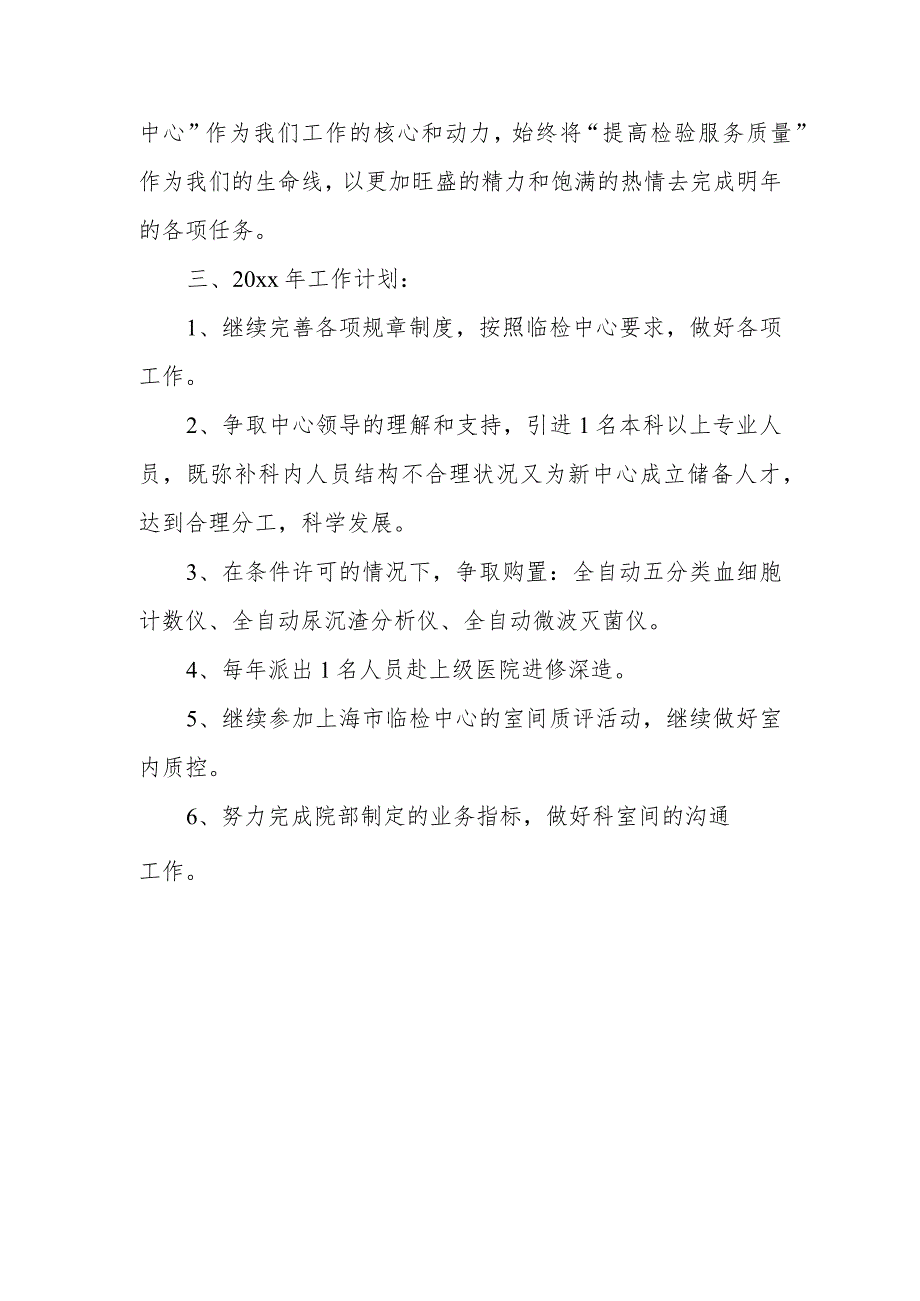 中心”作为我们工作的核心和动力，始终将“提高检验服务质量”
作为我们的生命线，以更加旺盛的精力和饱满的热情去完成明年
的各项任务。
三、20xx 年工作计划：
1、继续完善各项规章制度，按照临检中心要求，做好各项
工作。
2、争取中心领导的理解和支持，引进 1 名本科以上专业人
员，既弥补科内人员结构不合理状况又为新中心成立储备人才，
达到合理分工，科学发展。
3、在条件许可的情况下，争取购置：全自动五分类血细胞
计数仪、全自动尿沉渣分析仪、全自动微波灭菌仪。
4、每年派出 1 名人员赴上级医院进修深造。
5、继续参加上海市临检中心的室间质评活动，继续做好室
内质控。
6、努力完成院部制定的业务指标，做好科室间的沟通
工作。